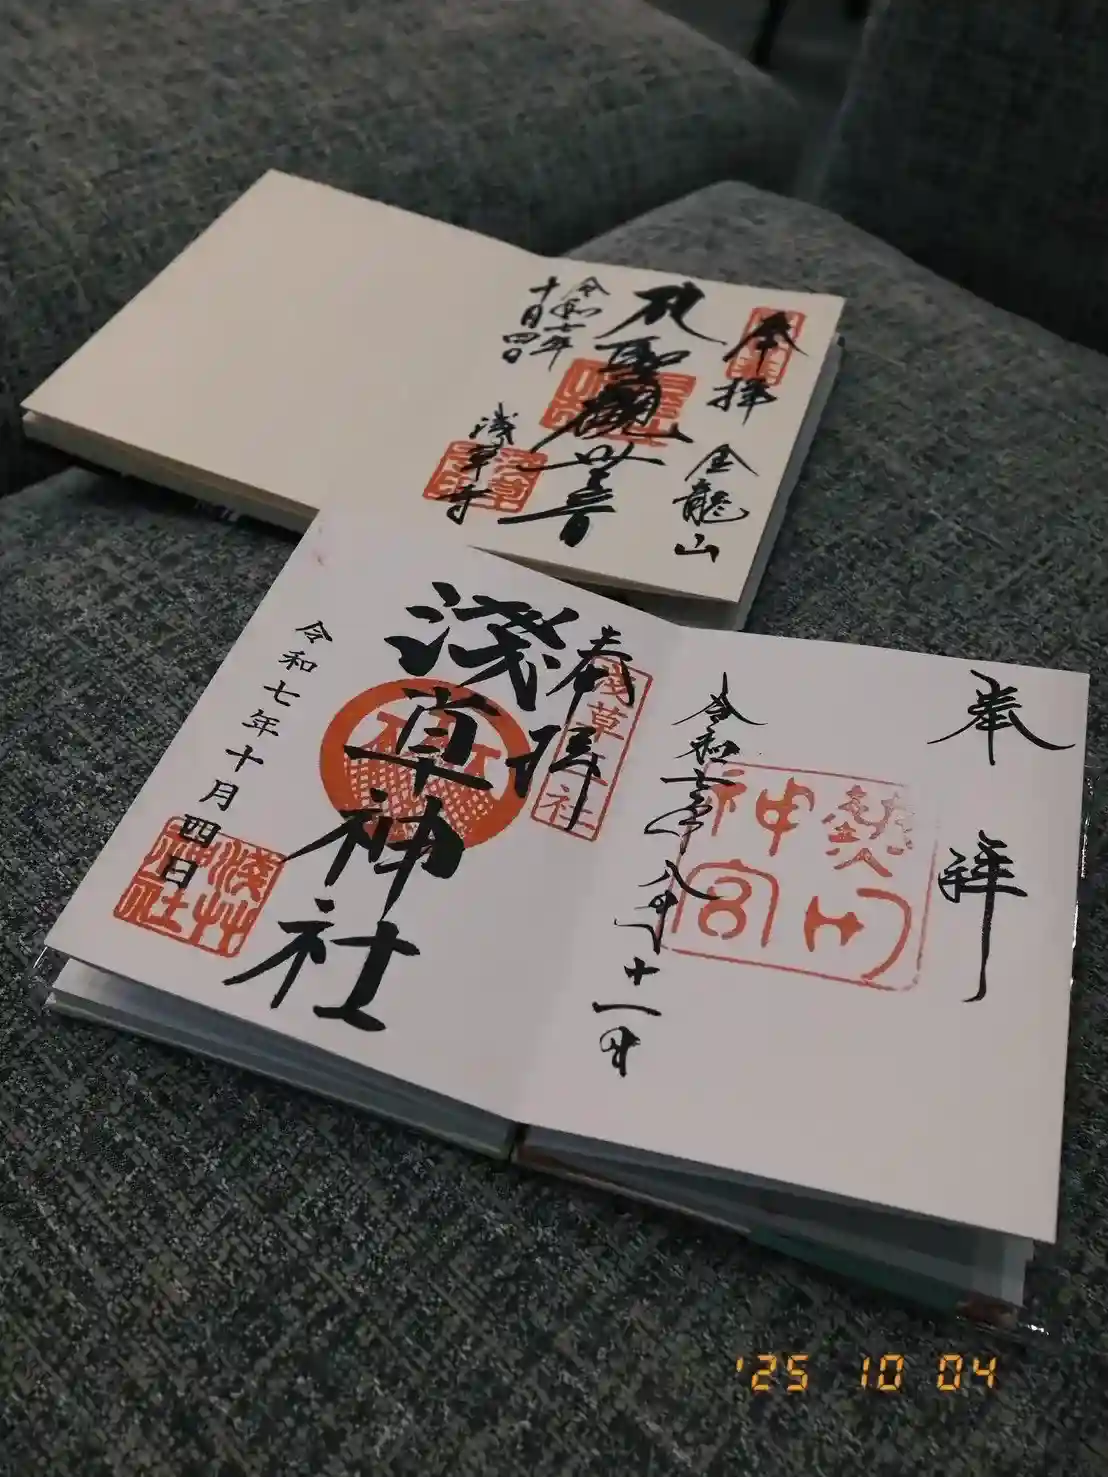 奉拝
金龍山
聖観世音
浅草寺
令和七年
十月四日
奉拝
熱田
神宮
令和七年八月十一日
奉拝
浅草神社
浅草神社
令和七年十月四日
'25 10 04